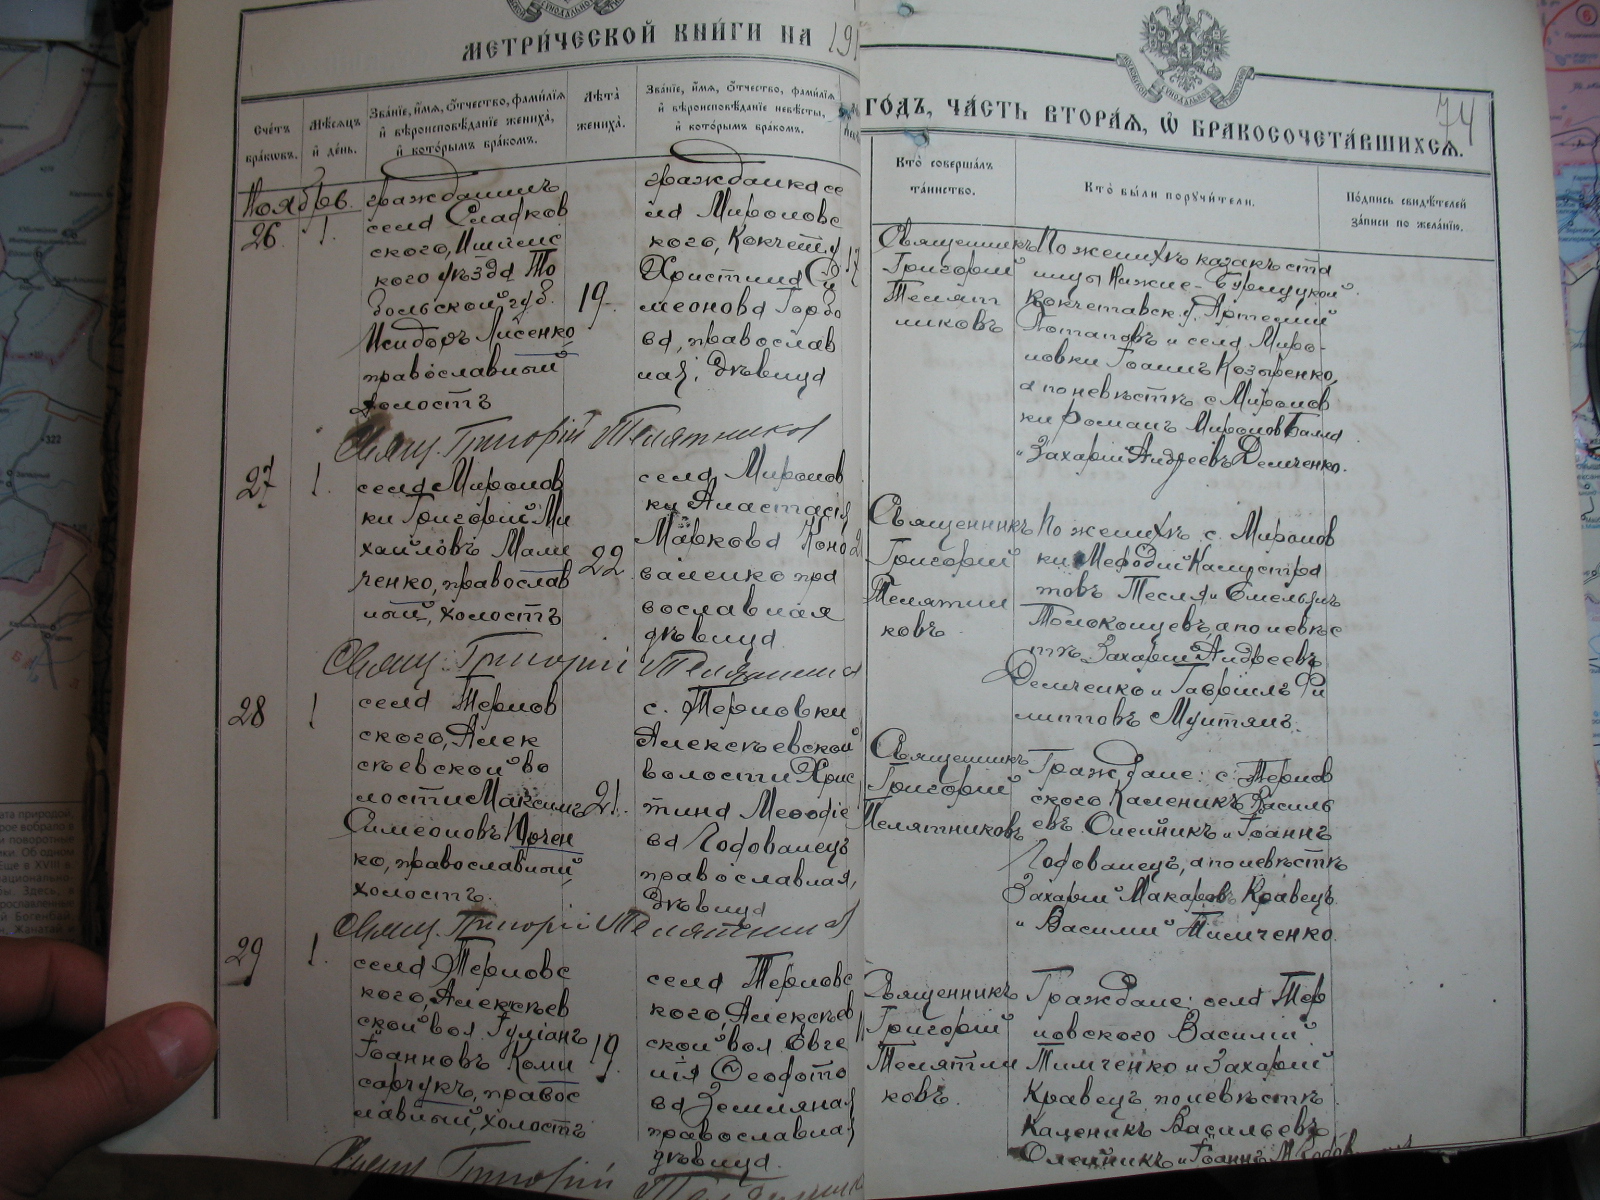 МЕТРИ́ЧЕСКОЙ КНИ́ГИ НА 191
ГОДЪ, ЧА́СТЬ ВТОРА́Я, Ѡ БРАКОСОЧЕТА́ВШИХСЯ.
74
Сче́тъ
бра́ковъ.
Мѣ́сяцъ
и҆ де́нь.
Зва́нїе, и҆́мя, ѻ҆́тчество, фами́лїя
и҆ вѣроисповѣ́данїе жениха̀,
и҆ кото́рымъ бра́комъ.
Лѣ́та
жениха̀.
Зва́нїе, и҆́мя, ѻ҆́тчество, фами́лїя
и҆ вѣроисповѣ́данїе невѣ́сты,
и҆ кото́рымъ бра́комъ.
Кто̀ соверша́лъ
та́инство.
Кто̀ бы́ли поручи́тели.
По́дпись свидѣ́телей
за́писи по жела́нїю.
Ноябрь.
26.
1.
гражданинъ
села Сладков
ского, Ишимс
кого уѣзда То
больской губ.
Исидоръ Лисенко,
православный
холостъ
19.
гражданка се
ла Мироновс
кого, Кокчет. у
Христина Си
меонова Горбо
ва, православ
ная, дѣвица
17
Священникъ
Григорій
Телят
никовъ
По женихѣ казакъ ста
ницы Нижне-Бурлукской
Кокчетавск. у. Артемий
Потаповъ и села Миро-
новки Іоаннъ Козыренко,
а по невѣстѣ с. Миронов
ки Романъ Мироновъ
и Захарій Андреевъ Демченко.
Свящ. Григорій Телятников
27
1.
села Миронов
ки Григорій Ми
хайловъ Мали
ченко, православ
ный, холостъ
22.
села Миронов
ки Анастасія
Маркова Коно
валенко пра
вославная
дѣвица
Священникъ
Григорій
Телятни
ковъ.
По женихѣ с. Миронов
ки Мефодій Калистра
товъ Тесля и Емельянъ
Толоконцевъ, а по невѣс
тѣ Захарій Андреевъ
Демченко и Гавріилъ Фи
липповъ Мунтянъ.
Свящ. Григорій Телятник
28
1
села Тернов
ского, Алек
сѣевской во
лости Максимъ
Симеоновъ Юрчен
ко, православный
холостъ.
21.
с. Терновки
Алексѣевской
волости Хрис
тина Меѳодіе
ва Годованецъ
православная,
дѣвица
Священникъ
Григорій
Телятниковъ
Граждане: с. Тернов
ского Каленикъ Василь
евъ Олейникъ и Іоаннъ
Годованецъ, а по невѣстѣ
Захарій Макаровъ Кравецъ
и Василий Тимченко.
Свящ. Григорій Телятников
29
1.
села Терновс
кого, Алексѣев
ской вол. Іуліанъ
Іоанновъ Коми
сарчукъ, правос
лавный, холостъ
19.
села Терновс
кого, Алексѣев
ской вол. Евге
нія Ѳеодото
ва Земляная
православная
дѣвица.
Священникъ
Григорій
Телятни
ковъ.
Граждане: села Тер
новского Василій
Тимченко и Захарій
Кравецъ по невѣстѣ
Каленикъ Васильевъ
Олейникъ и Іоаннъ
Свящ. Григорій